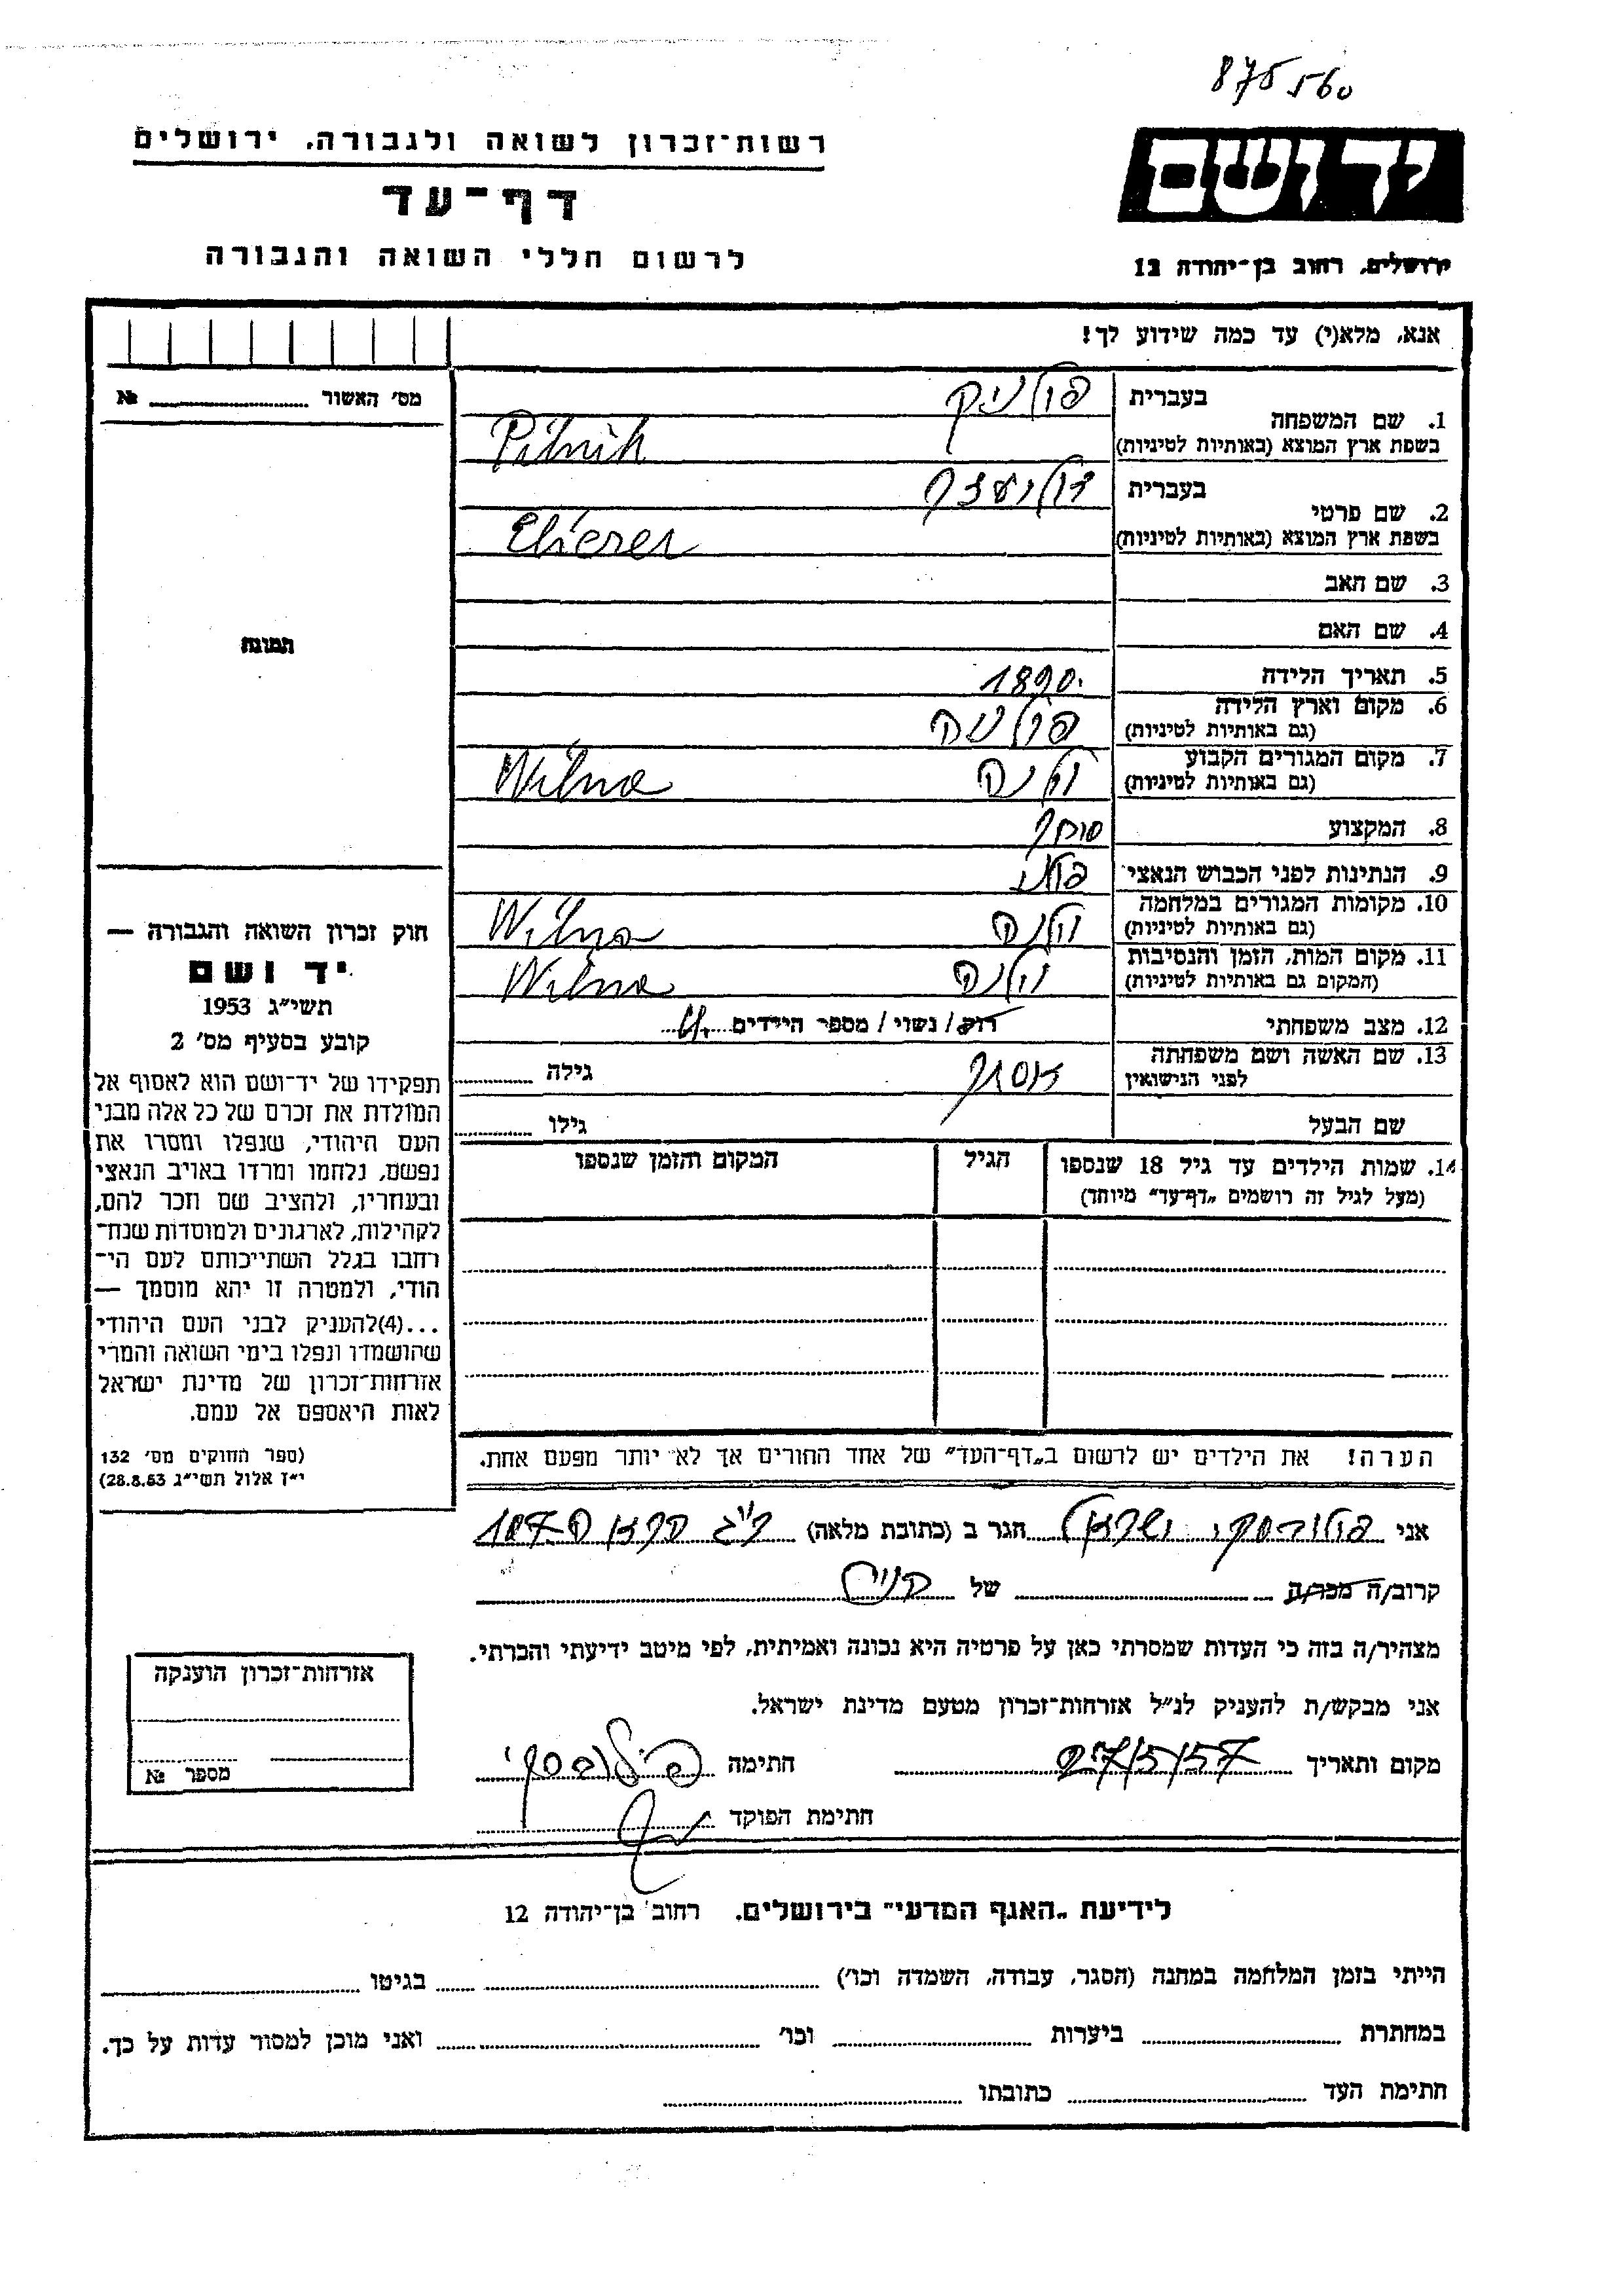 875560
רשות־זכרון לשואה ולגבורה. ירושלים
יד ושם
דף־עד
לרשום חללי השואה והגבורה
ירושלים, רחוב בן־יהודה 12
אנא, מלא(י) עד כמה שידוע לך!
מס׳ האשור № 
תמונה
1. שם המשפחה
בעברית
בשפת ארץ המוצא (באותיות לטיניות)
2. שם פרטי
בעברית אליעזר
בשפת ארץ המוצא (באותיות לטיניות) Elierer
3. שם האב
4. שם האם
5. תאריך הלידה 1890
6. מקום וארץ הלידה
(גם באותיות לטיניות)
7. מקום המגורים הקבוע וילנה Wilna
(גם באותיות לטיניות)
8. המקצוע סוחר
9. הנתינות לפני הכבוש הנאצי
10. מקומות המגורים במלחמה וילנה Wilna
(גם באותיות לטיניות)
11. מקום המות, הזמן והנסיבות וילנה Wilna
(המקום גם באותיות לטיניות)
12. מצב משפחתי רוק/ נשוי/ מספר הילדים
13. שם האשה ושם משפחתה אסתר גילה
לפני הנישואין
שם הבעל גילו
14. שמות הילדים עד גיל 18 שנספו הגיל המקום והזמן שנספו
(מעל לגיל זה רושמים „דף־עד״ מיוחד)
הערה! את הילדים יש לרשום ב„דף־העד״ של אחד ההורים אך לא יותר מפעם אחת.
חוק זכרון השואה והגבורה —
יד ושם
תשי״ג 1953
קובע בסעיף מס׳ 2
תפקידו של יד־ושם הוא לאסוף אל
המולדת את זכרם של כל אלה מבני
העם היהודי, שנפלו ומסרו את
נפשם, נלחמו ומרדו באויב הנאצי
ובעוזריו, ולהציב שם וזכר להם,
לקהילות, לארגונים ולמוסדות שנח־
רבו בגלל השתייכותם לעם הי־
הודי, ולמטרה זו יהא מוסמך —
...(4)להעניק לבני העם היהודי
שהושמדו ונפלו בימי השואה והמרי
אזרחות־זכרון של מדינת ישראל
לאות היאספם אל עמם.
(ספר החוקים מס׳ 132
י״ז אלול תשי״ג 28.8.53)
אני ישראל הגר ב (כתובת מלאה)
קרוב/ה מכר/ה של
מצהיר/ה בזה כי העדות שמסרתי כאן על פרטיה היא נכונה ואמיתית, לפי מיטב ידיעתי והכרתי.
אני מבקש/ת להעניק לנ״ל אזרחות־זכרון מטעם מדינת ישראל.
מקום ותאריך חתימה
חתימת הפוקד
אזרחות־זכרון הוענקה
מספר №
לידיעת „האגף המדעי״ בירושלים. רחוב בן־יהודה 12
הייתי בזמן המלחמה במחנה (הסגר, עבודה, השמדה וכו׳) בגיטו
במחתרת ביערות וכו׳ ואני מוכן למסור עדות על כך.
חתימת העד כתובתו